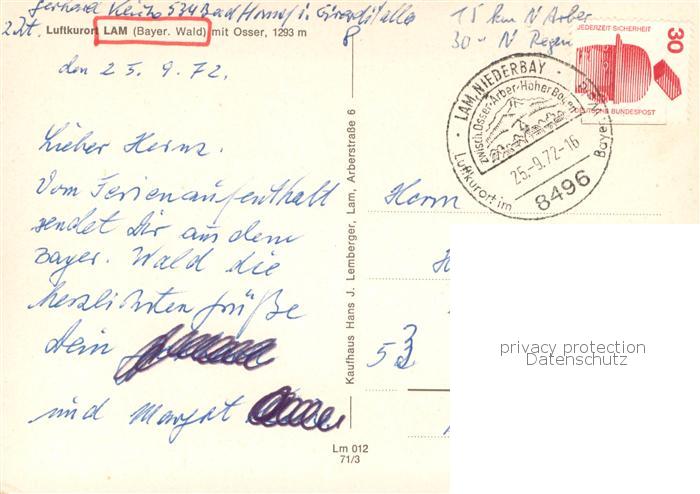 Gerhard 534 Bad Honnef
z.Zt. Luftkurort LAM (Bayer. Wald) mit Osser, 1293 m
8
15 km N Arber
30 - N Regen
den 25.9.72.
Lieber Heinz.
Vom Ferienaufenthalt
sendet Dir aus dem
Bayer. Wald die
herzlichsten Grüße
Dein
und Margret
Kaufhaus Hans J. Lemberger, Lam, Arberstraße 6
Lm 012
71/3
JEDERZEIT SICHERHEIT
30
DEUTSCHE BUNDESPOST
LAM, NIEDERBAY
zwisch. Osser-Arber-Hoher Bogen
25.-9.72-16
Luftkurort im Bayer. Wald
8496
Herrn
H
53
privacy protection
Datenschutz